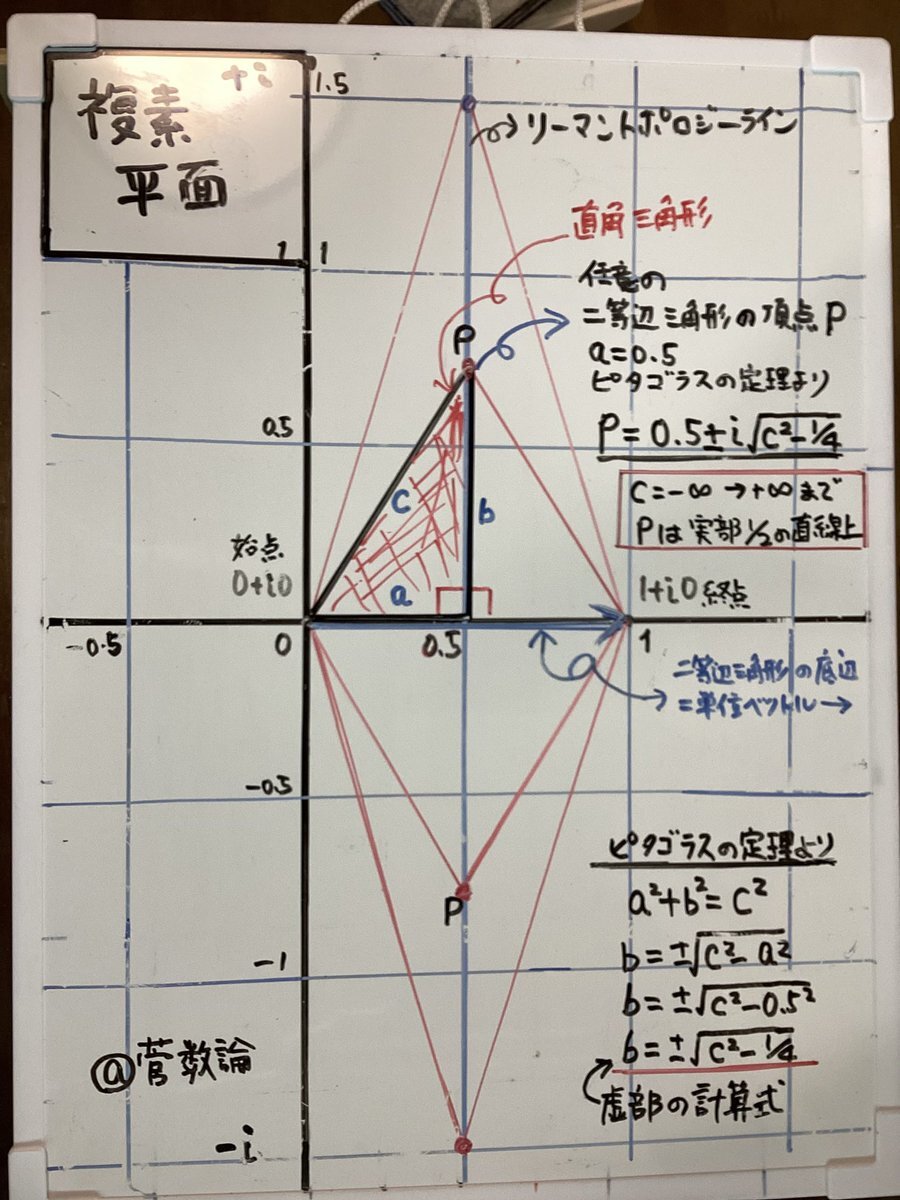 複素
平面
+i
1.5
リーマントポロジーライン
直角三角形
1
1
任意の
二等辺三角形の頂点P
a=0.5
ピタゴラスの定理より
P=0.5±i√c²-1/4
P
0.5
c=-∞→+∞まで
Pは実部1/2の直線上
c
b
a
始点
0+i0
1+i0 終点
-0.5
0
0.5
1
二等辺三角形の底辺
=単位ベットル→
-0.5
ピタゴラスの定理より
P
a²+b²=c²
b=±√c²-a²
-1
b=±√c²-0.5²
b=±√c²-1/4
@菅数論
虚部の計算式
-i